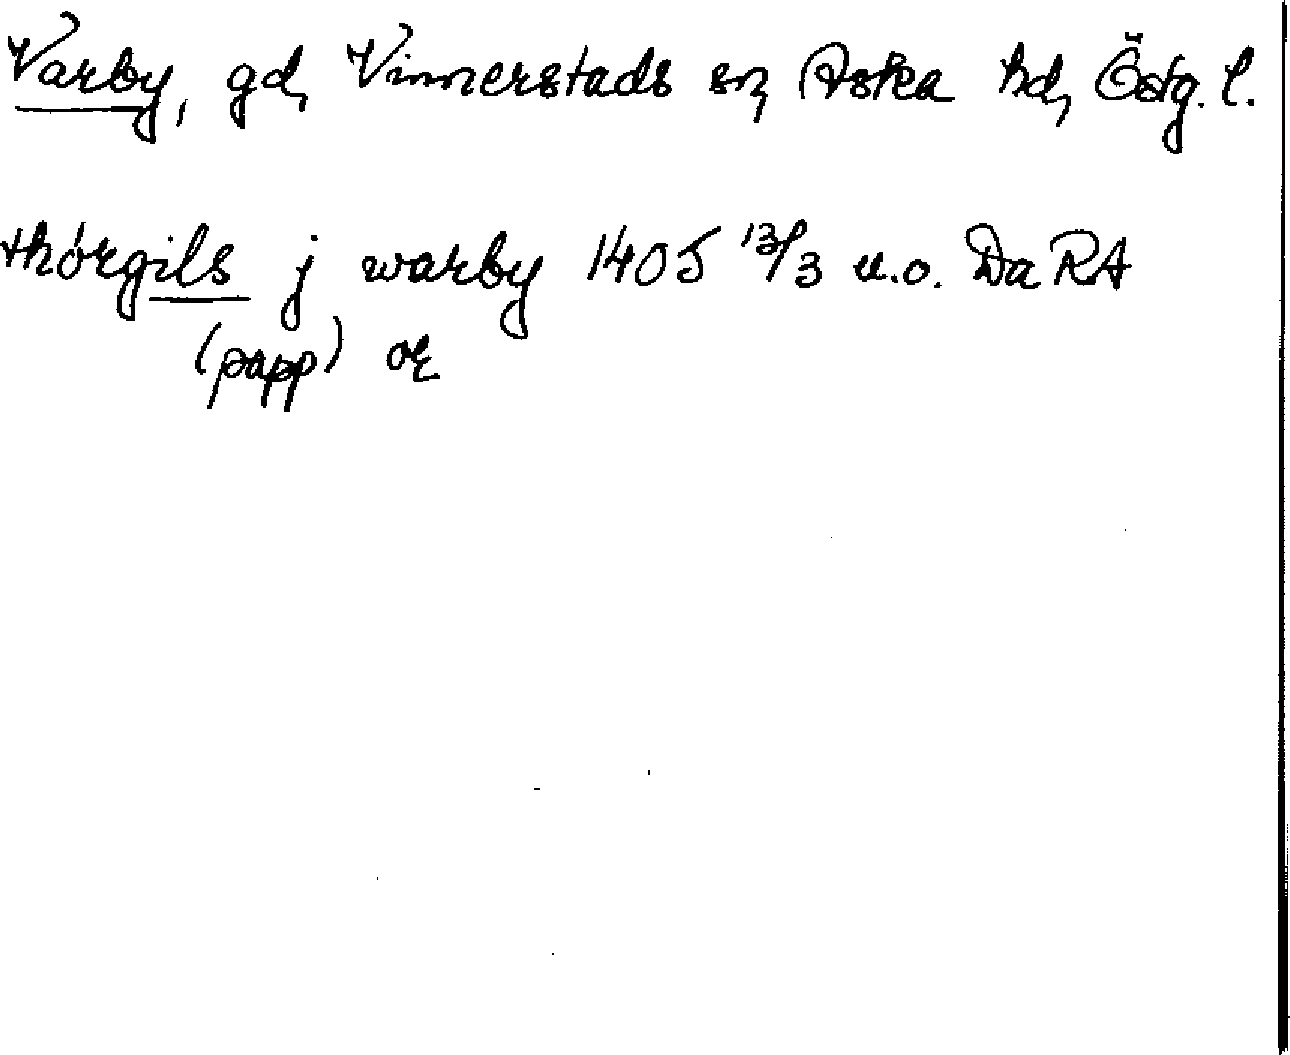 Varby, gd, Vinnerstads sn, Aska hd, Östg. l.
thórgils j warby 1405 13/3 u.o. Da RA
(papp) or